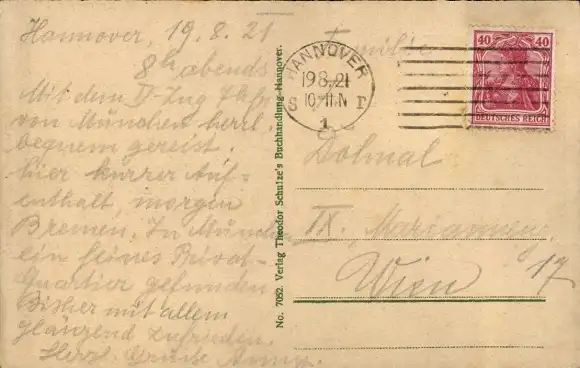 Hannover, 19.8.21
8h abends
Mit dem D-Zug 7h fr
von München herrl.
bequem gereist.
hier kurzer Auf=
enthalt, morgen
Bremen. In München
ein feines Privat-
Quartier gefunden
Bisher mit allem
glänzend zufrieden.
Herzl. Grüße Anny.
No. 7052. Verlag Theodor Schulze's Buchhandlung-Hannover.
HANNOVER
19.8.21
10-11.N
1
40 40
DEUTSCHES REICH
Familie
Dolmal
IX.
Wien 17